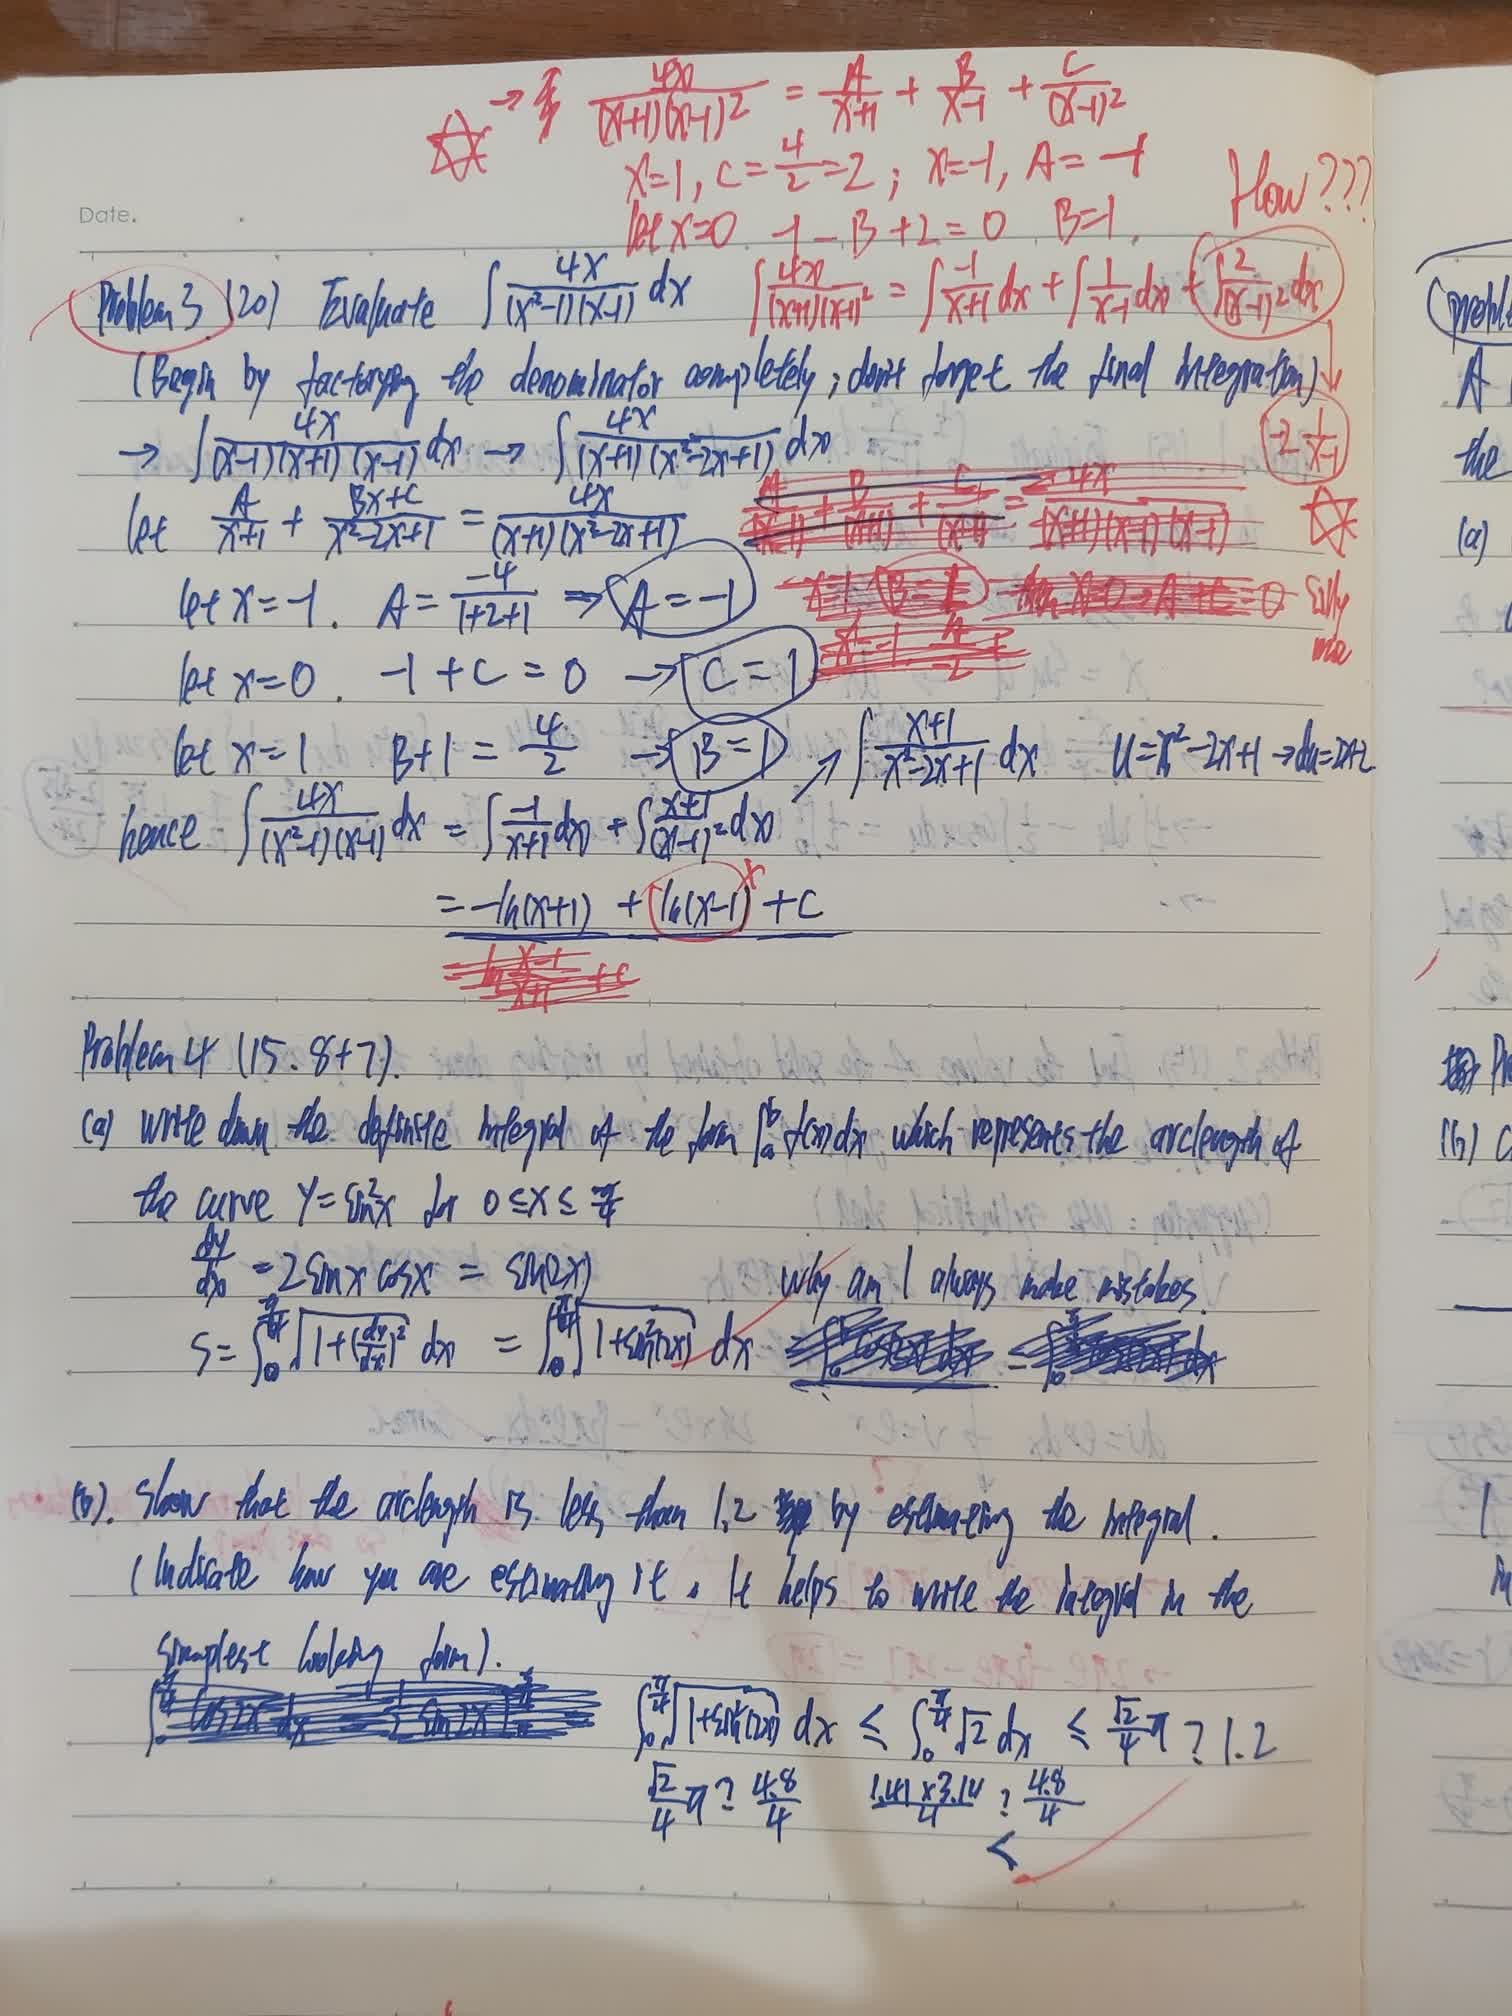 → 4x/(x+1)(x-1)² = A/x+1 + B/x-1 + C/(x-1)²
x=1, C=4/2=2; x=-1, A=-1
let x=0 -1-B+2=0 B=1. How???
Date.
Problem 3 (20) Evaluate ∫ 4x/(x²-1)(x-1) dx ∫ 4x/(x+1)(x-1)² = ∫ -1/x+1 dx + ∫ 1/x-1 dx + ∫ 2/(x-1)² dx
(Begin by factorying the denominator completely; don't forget the final integration)
→ ∫ 4x/(x-1)(x+1)(x-1) dx → ∫ 4x/(x+1)(x²-2x+1) dx -2 1/x-1
let A/x+1 + Bx+C/x²-2x+1 = 4x/(x+1)(x²-2x+1)
let x=-1. A = -4/1+2+1 ⇒ A=-1 silly
let x=0. -1+C=0 → C=1
let x=1 B+1=4/2 → B=1 ↗ ∫ x+1/x²-2x+1 dx U=x²-2x+1 →
hence ∫ 4x/(x²-1)(x-1) dx = ∫ -1/x+1 dx + ∫ x+1/(x-1)² dx
= -ln(x+1) + ln(x-1) + C
Problem 4 (15. 8+7).
(a) write down the definite integral of the form ∫ₐᵇ f(x) dx which represents the arclength of
the curve y=sin²x for 0≤x≤π/4
dy/dx = 2sinx cosx = sin(2x) why am I always make mistakes.
S = ∫₀^π/4 √1+(dy/dx)² dx = ∫₀^π/4 √1+sin²(2x) dx
(b). Show that the arclength is less than 1.2 by estimating the integral.
(Indicate how you are estimating it. It helps to write the integral in the
simplest looking form).
∫₀^π/4 √1+sin²(2x) dx ≤ ∫₀^π/4 √2 dx ≤ √2/4 π ? 1.2
√2/4 π ? 4.8/4 1.41×3.14/4 ? 4.8/4
<